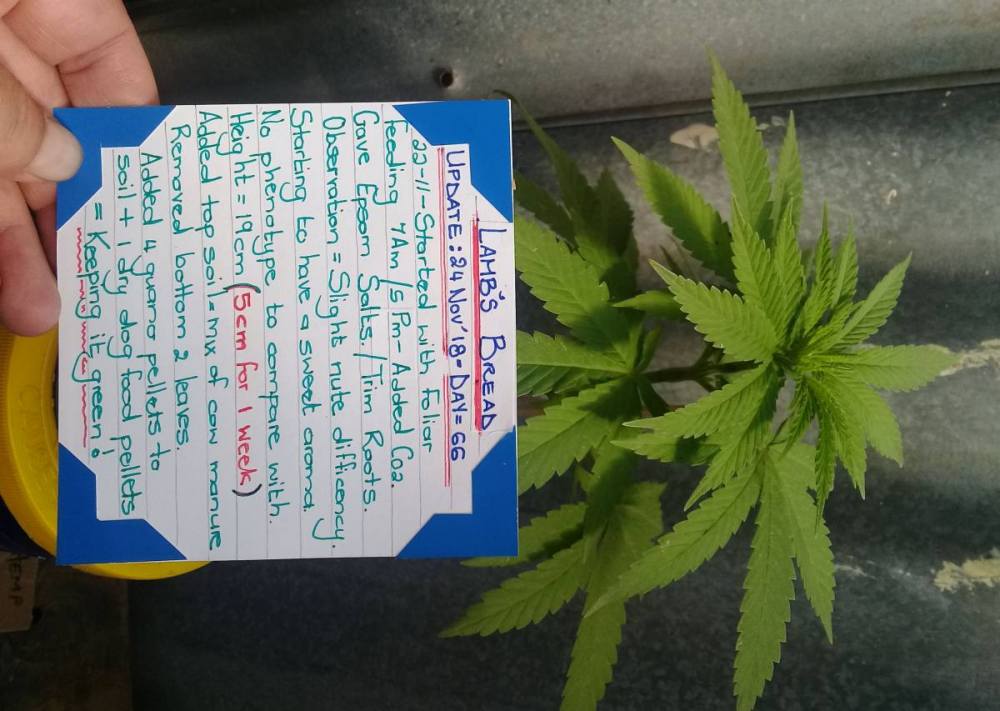 LAMB'S BREAD
UPDATE: 24 Nov '18 - DAY = 66
22-11-Started with foliar
feeding 7Am/5Pm- Added Co2.
Gave Epsom Salts./Trim Roots.
Observation = Slight nute difficency.
Starting to have a sweet aroma.
No phenotype to compare with.
Height = 19cm (5cm for 1 week)
Added top soil = mix of cow manure
Removed bottom 2 leaves.
Added 4 guano pellets to
soil + 1 dry dog food pellets
= Keeping it green!